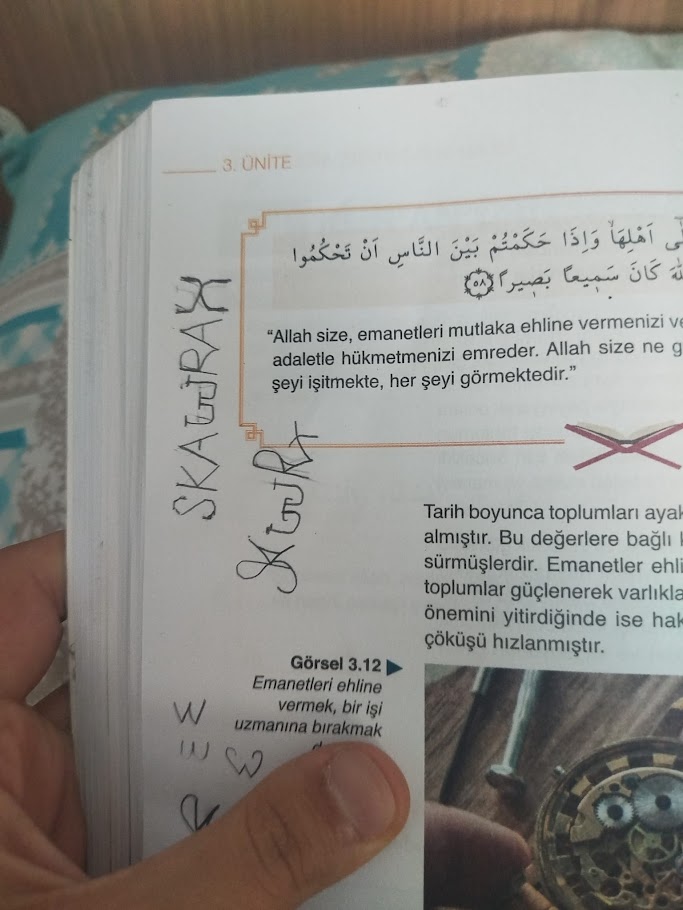 3. ÜNİTE
اَهْلِهَاۙ وَاِذَا حَكَمْتُمْ بَيْنَ النَّاسِ اَنْ تَحْكُمُوا
كَانَ سَم۪يعًا بَص۪يرًا ﴿٥٨﴾
“Allah size, emanetleri mutlaka ehline vermenizi ve
adaletle hükmetmenizi emreder. Allah size ne g
şeyi işitmekte, her şeyi görmektedir.”
Tarih boyunca toplumları ayak
almıştır. Bu değerlere bağlı k
sürmüşlerdir. Emanetler ehli
toplumlar güçlenerek varlıkla
önemini yitirdiğinde ise hak
çöküşü hızlanmıştır.
Görsel 3.12
Emanetleri ehline
vermek, bir işi
uzmanına bırakmak